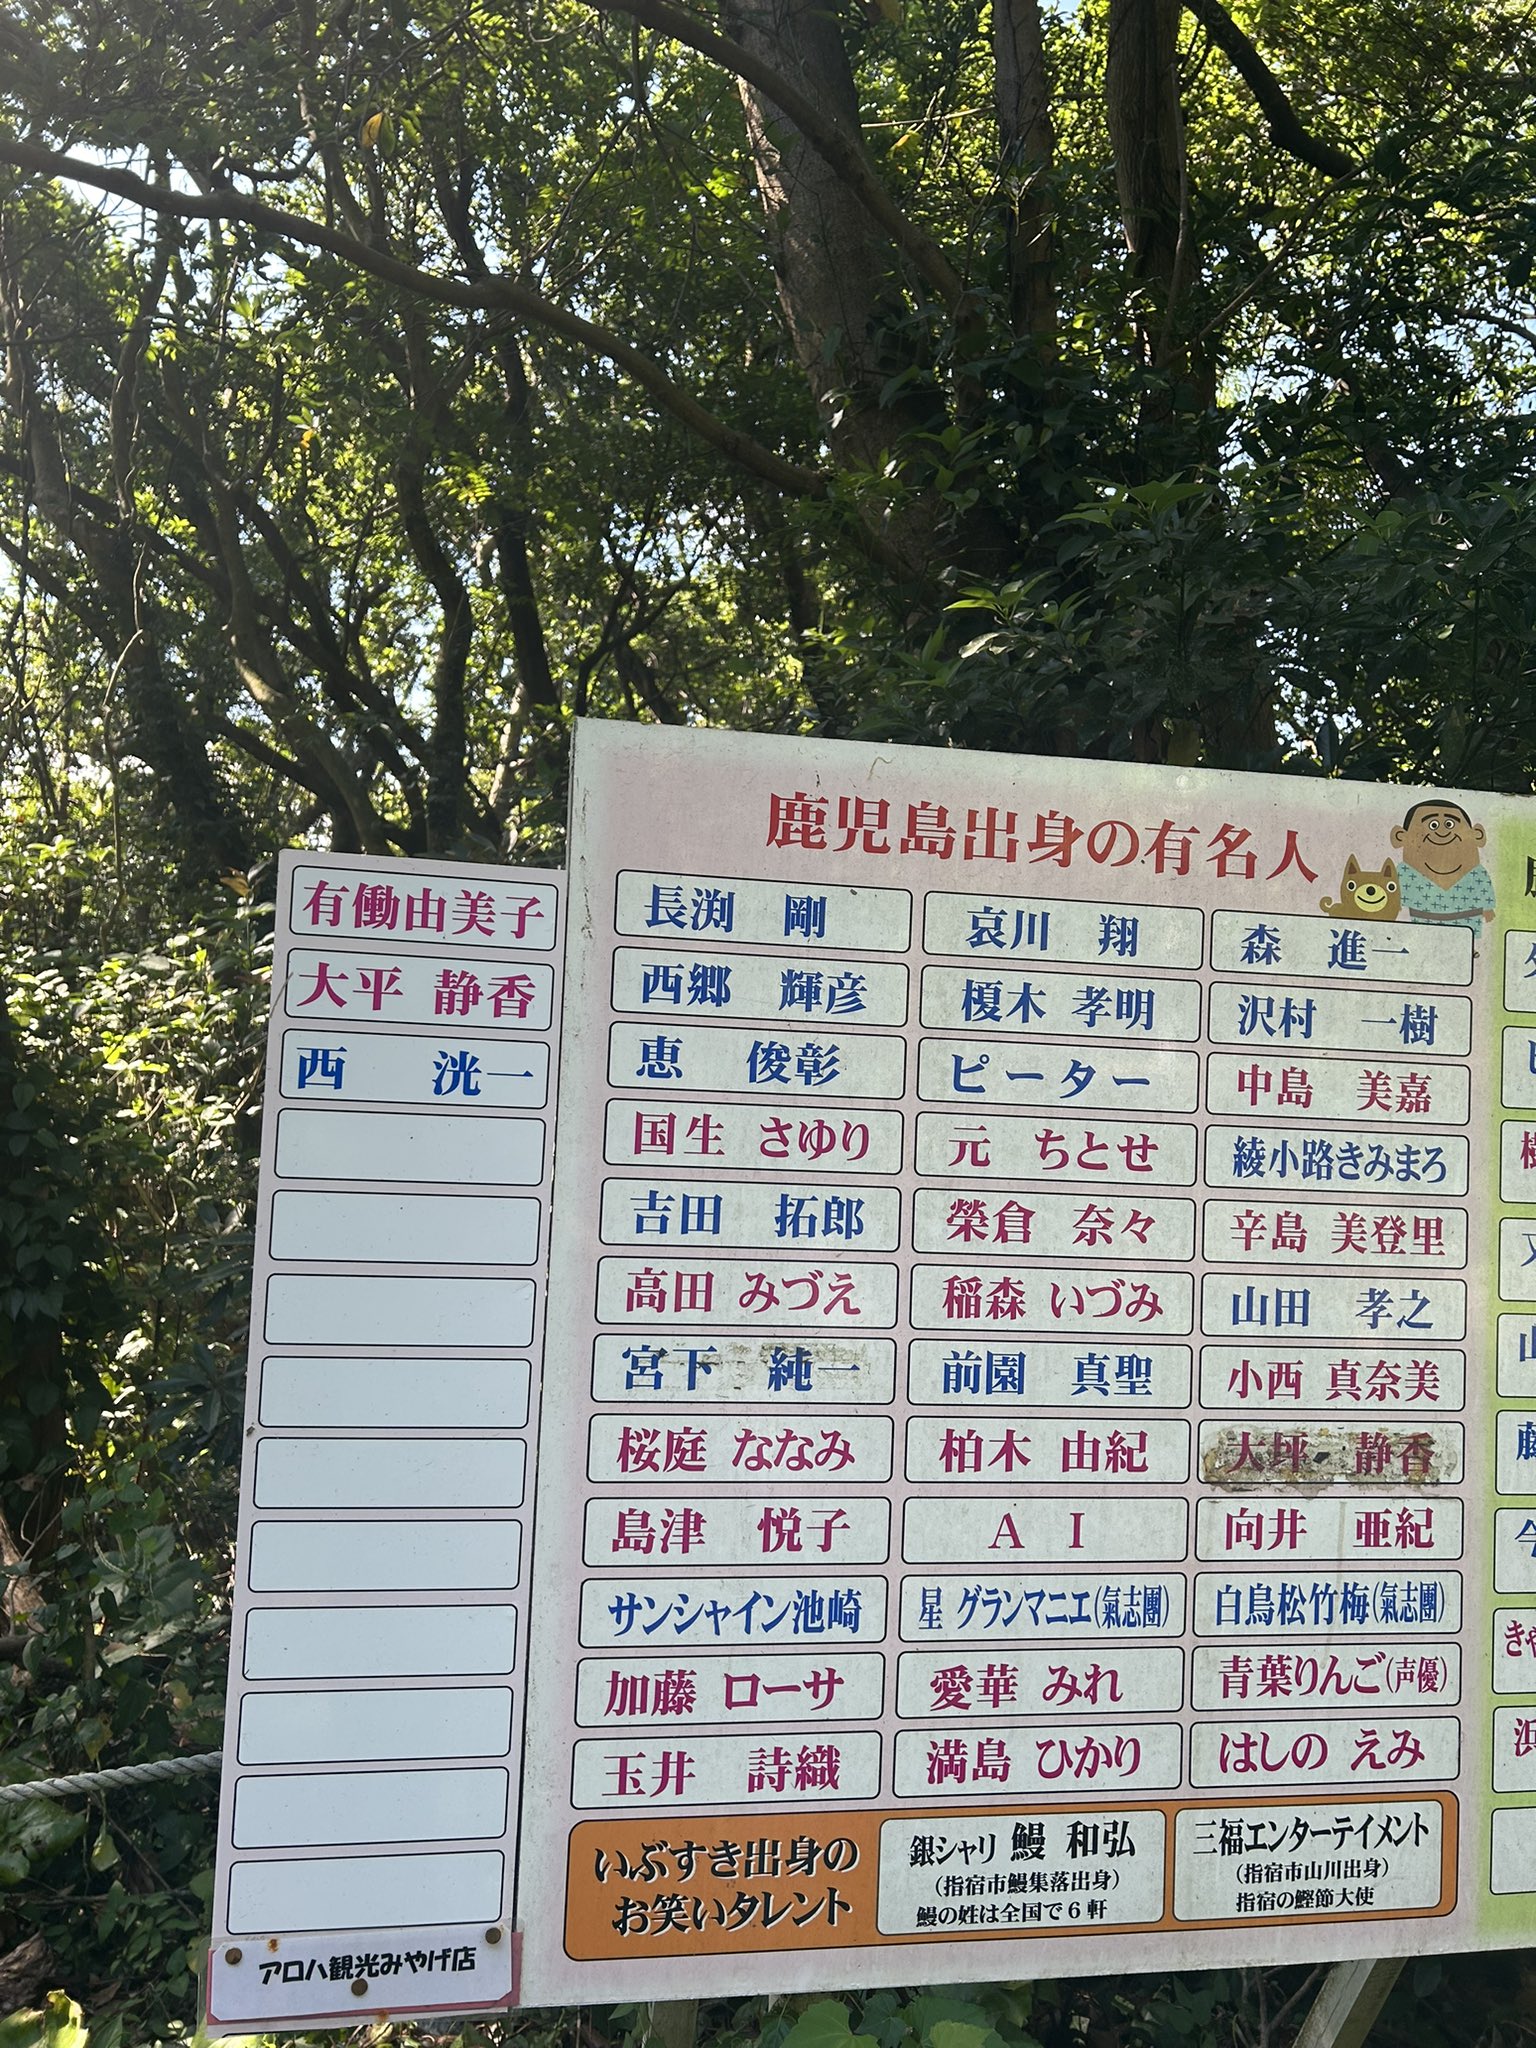 有働由美子
大平 静香
西 洸一
アロハ観光みやげ店
鹿児島出身の有名人
長渕 剛
哀川 翔
森 進一
西郷 輝彦
榎木 孝明
沢村 一樹
恵 俊彰
ピーター
中島 美嘉
国生 さゆり
元 ちとせ
綾小路きみまろ
吉田 拓郎
榮倉 奈々
辛島 美登里
高田 みづえ
稲森 いづみ
山田 孝之
宮下 純一
前園 真聖
小西 真奈美
桜庭 ななみ
柏木 由紀
大坪 静香
島津 悦子
A I
向井 亜紀
サンシャイン池崎
星 グランマニエ(氣志團)
白鳥松竹梅(氣志團)
加藤 ローサ
愛華 みれ
青葉りんご(声優)
玉井 詩織
満島 ひかり
はしの えみ
いぶすき出身の
お笑いタレント
銀シャリ 鰻 和弘
(指宿市鰻集落出身)
鰻の姓は全国で6軒
三福エンターテイメント
(指宿市山川出身)
指宿の鰹節大使